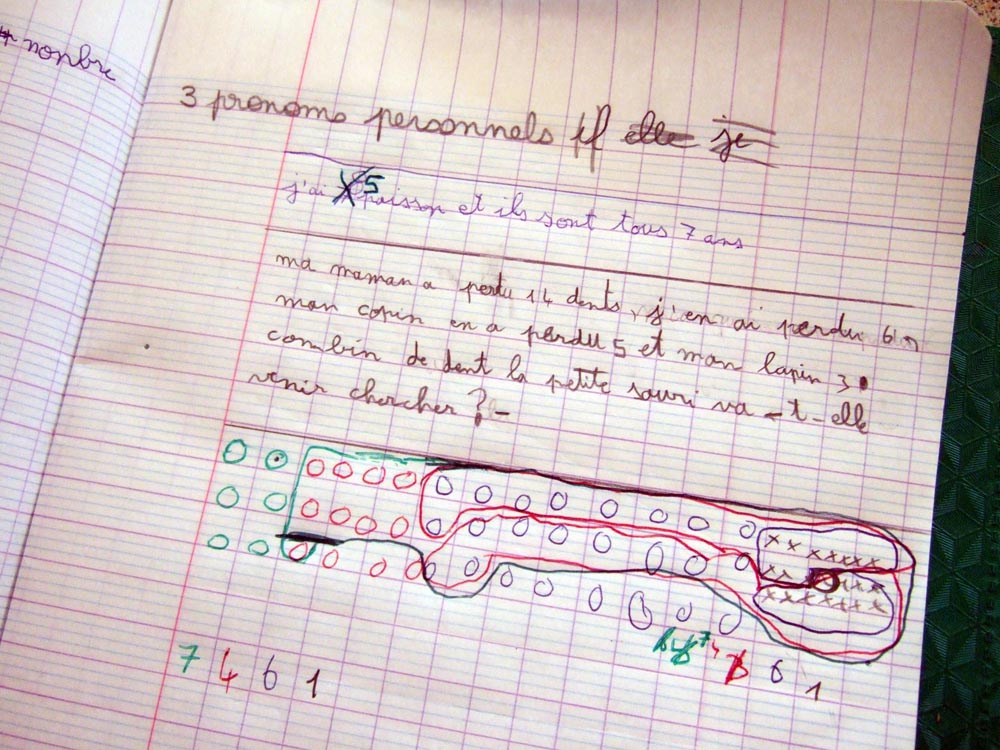 nonbre
3 pronoms personnels il elle je
j'ai 5 poisson et ils sont tous 7 ans
ma maman a perdu 14 dents, j'en ai perdu 6,
mon copin en a perdu 5 et mon lapin 3.
conbin de dent la petite souri va-t-elle
venir chercher ? -
7 4 6 1
7 4 6 1